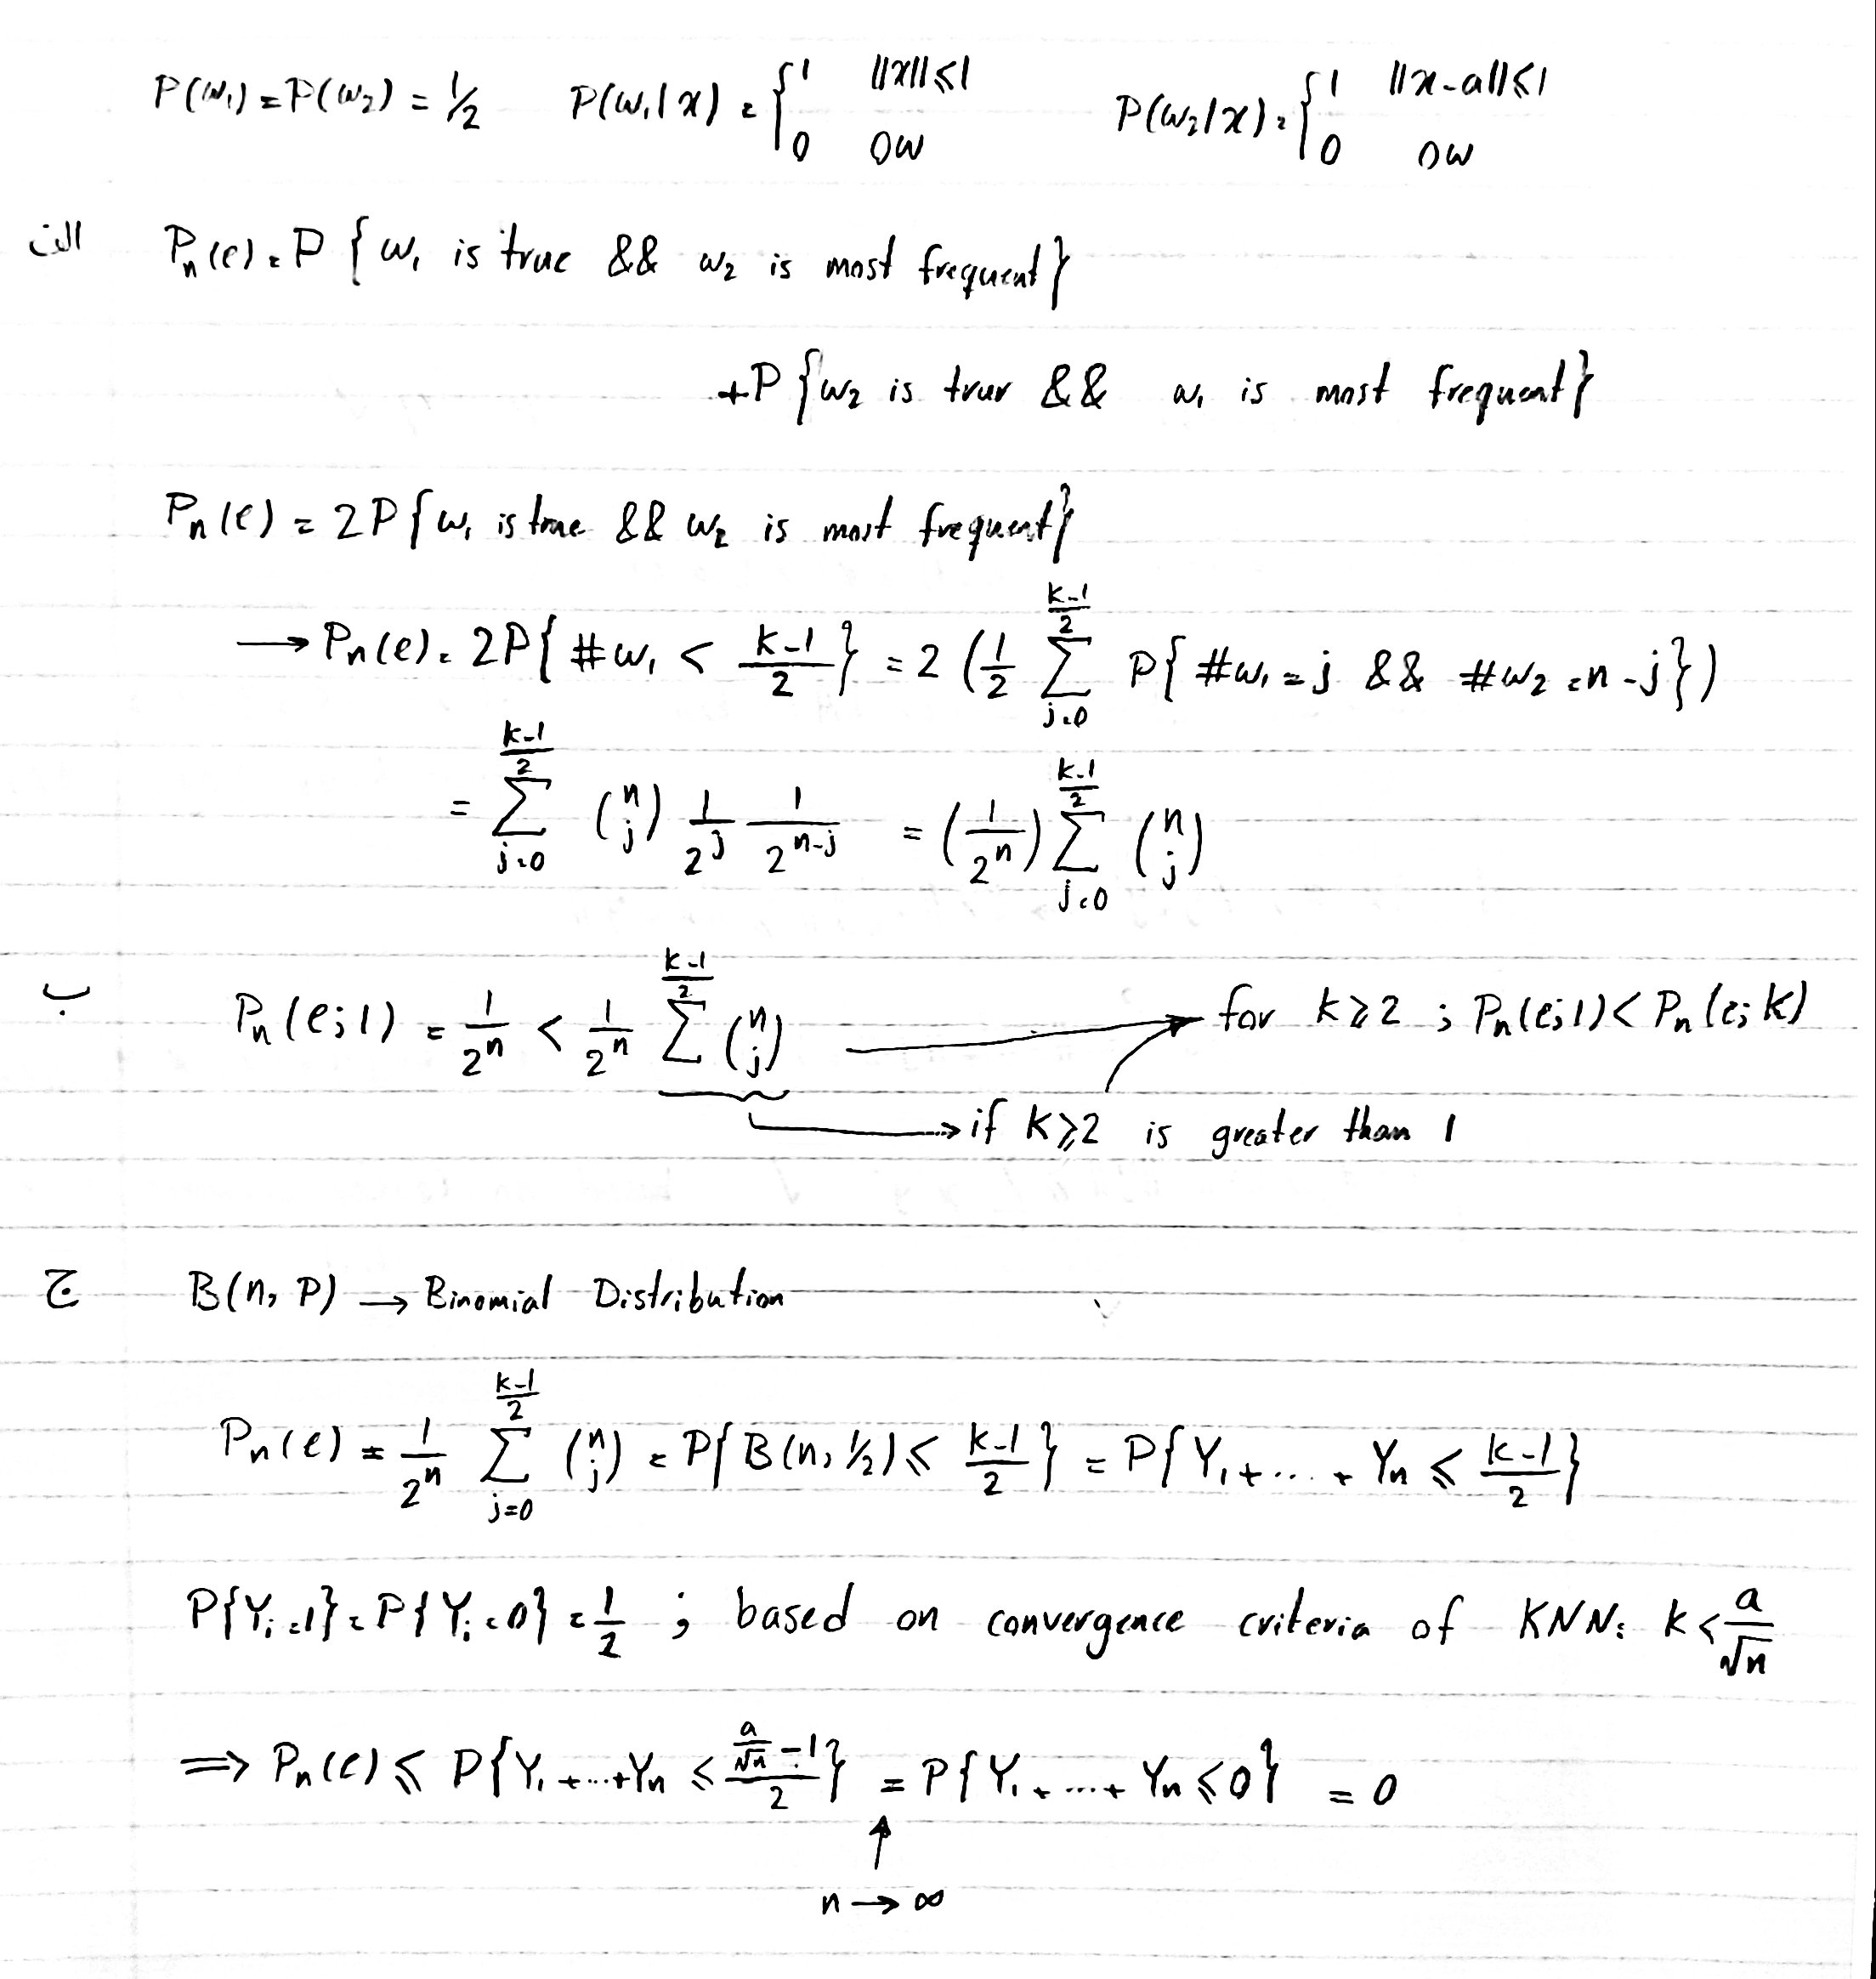 P(ω₁) = P(ω₂) = 1/2   P(ω₁|x) = { 1  ||x|| ⩽ 1 ; 0  OW   P(ω₂|x) = { 1  ||x-a|| ⩽ 1 ; 0  OW
الف   Pₙ(e) = P { ω₁ is true && ω₂ is most frequent }
+ P { ω₂ is true && ω₁ is most frequent }
Pₙ(e) = 2P { ω₁ is true && ω₂ is most frequent }
→ Pₙ(e) = 2P { #ω₁ < (k-1)/2 } = 2 ( 1/2 ∑_{j=0}^{(k-1)/2} P { #ω₁ = j && #ω₂ = n-j } )
= ∑_{j=0}^{(k-1)/2} (n j) 1/2^j 1/2^{n-j} = (1/2^n) ∑_{j=0}^{(k-1)/2} (n j)
ب   Pₙ(e;1) = 1/2^n < 1/2^n ∑^{(k-1)/2} (n j) → for k ⩾ 2 ; Pₙ(e;1) < Pₙ(e;k)
→ if k ⩾ 2 is greater than 1
ج   B(n, P) → Binomial Distribution
Pₙ(e) = 1/2^n ∑_{j=0}^{(k-1)/2} (n j) = P { B(n, 1/2) ⩽ (k-1)/2 } = P { Y₁ + .... + Yₙ ⩽ (k-1)/2 }
P{Yᵢ = 1} = P{Yᵢ = 0} = 1/2 ; based on convergence criteria of KNN: k < a/√n
⟹ Pₙ(e) ⩽ P { Y₁ + ... + Yₙ ⩽ (a/√n - 1)/2 } = P { Y₁ + .... + Yₙ ⩽ 0 } = 0
↑
n → ∞